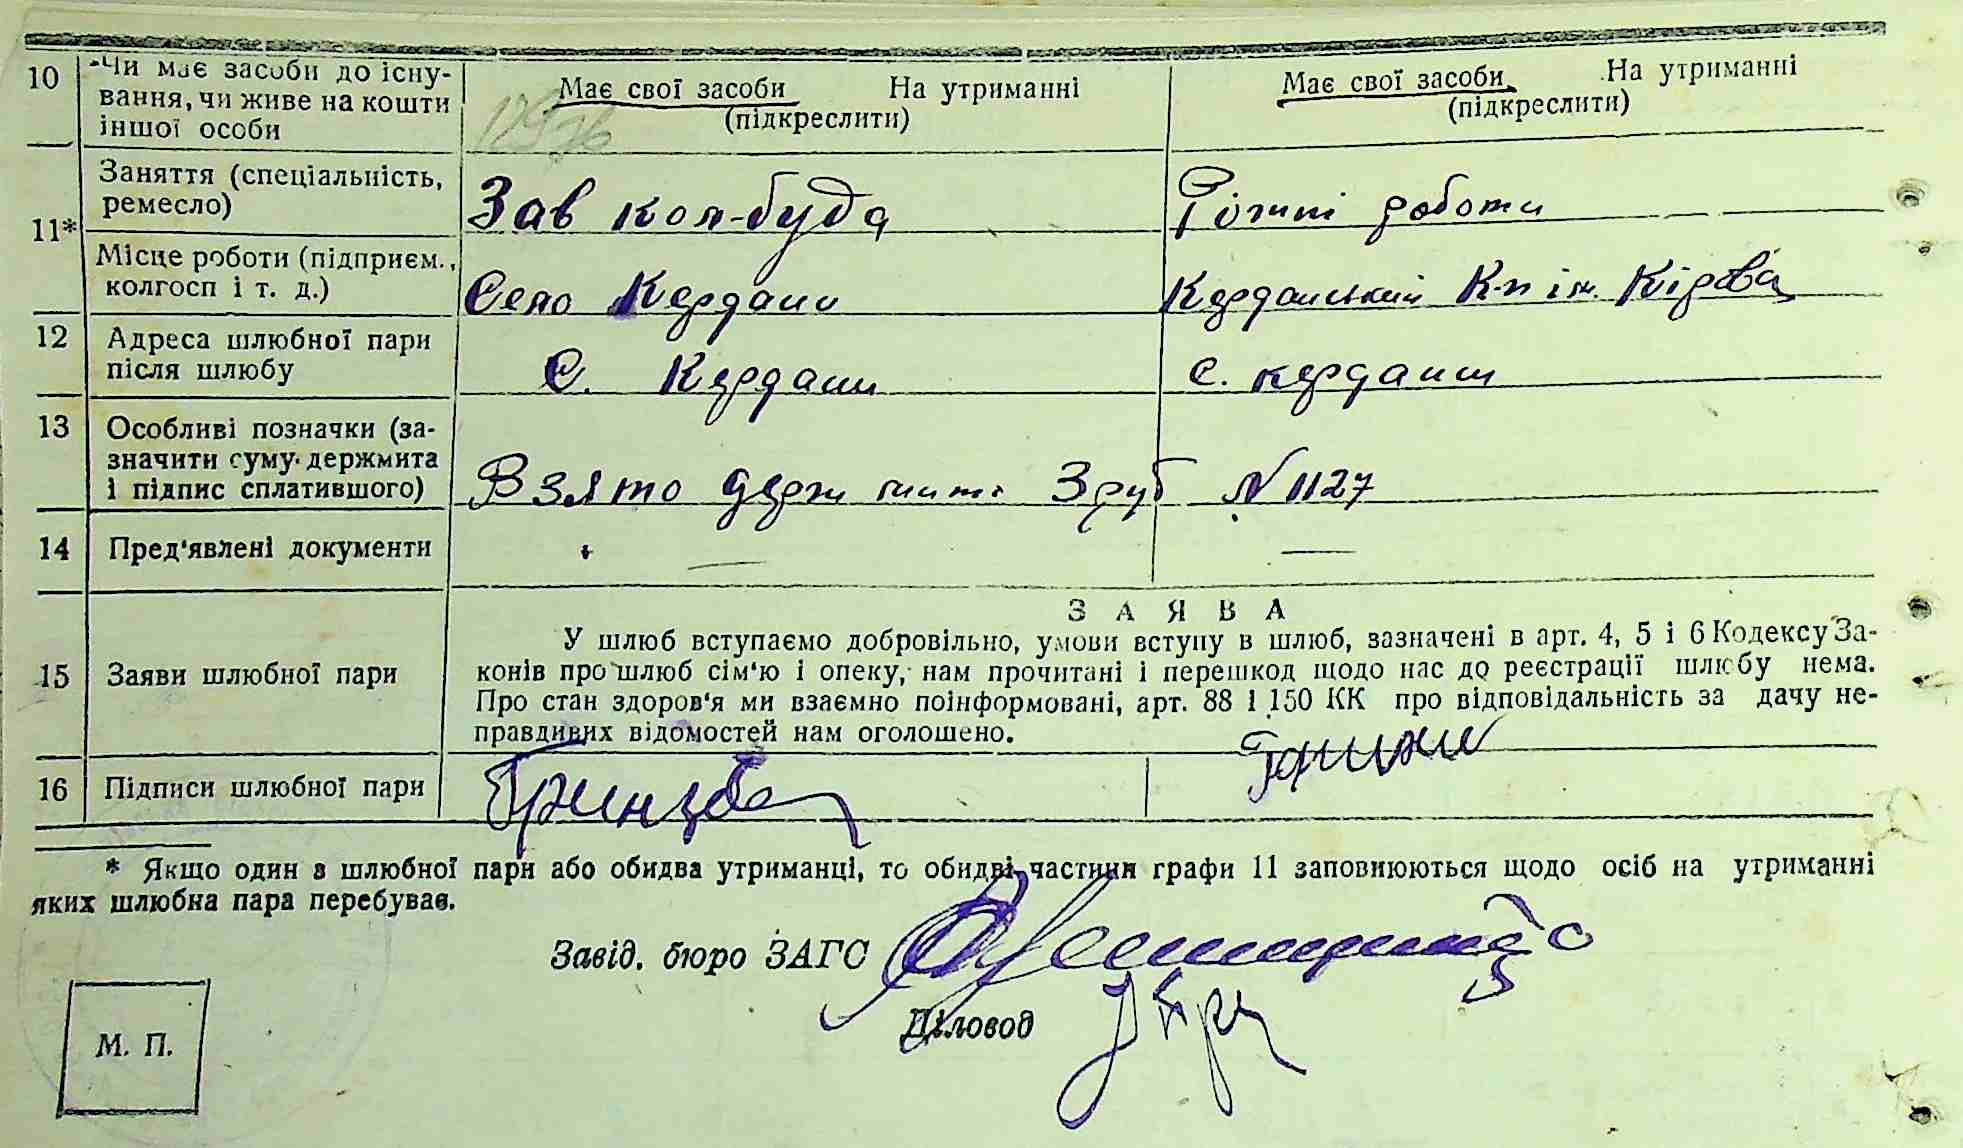 10 Чи має засоби до існу-
вання, чи живе на кошти
іншої особи
Має свої засоби На утриманні
(підкреслити)
Має свої засоби На утриманні
(підкреслити)
11*
Заняття (спеціальність,
ремесло)
Зав кол-буда
Різнні роботи
Місце роботи (підприєм.,
колгосп і т. д.)
Село Кердани
Керданський К-п ім. Кірова
12 Адреса шлюбної пари
після шлюбу
С. Кердани
с. Кердани
13 Особливі позначки (за-
значити суму держмита
і підпис сплатившого)
Взято держ мита 3 руб № 1127
14 Пред'явлені документи
— —
ЗАЯВА
15 Заяви шлюбної пари
У шлюб вступаємо добровільно, умови вступу в шлюб, зазначені в арт. 4, 5 і 6 Кодексу За-
конів про шлюб сім'ю і опеку, нам прочитані і перешкод щодо нас до реєстрації шлюбу нема.
Про стан здоров'я ми взаємно поінформовані, арт. 88 і 150 КК про відповідальність за дачу не-
правдивих відомостей нам оголошено.
16 Підписи шлюбної пари
* Якщо один з шлюбної пари або обидва утриманці, то обидві частини графи 11 заповнюються щодо осіб на утриманні
яких шлюбна пара перебуває.
Завід. бюро ЗАГС
Діловод
М. П.